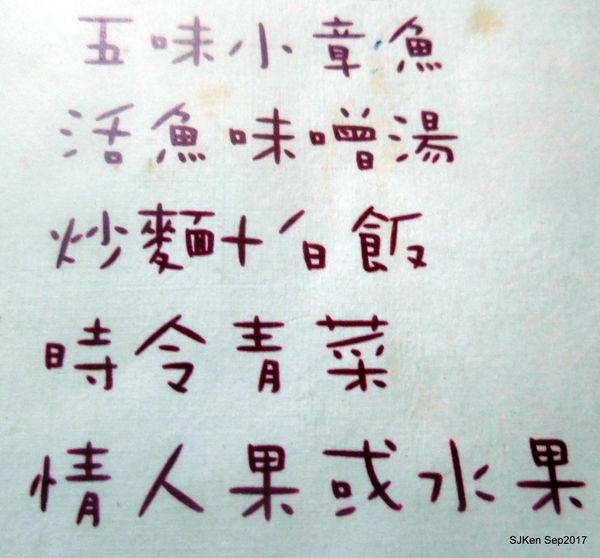 五味小章魚
活魚味噌湯
炒麵+白飯
時令青菜
情人果或水果
SJKen Sep2017